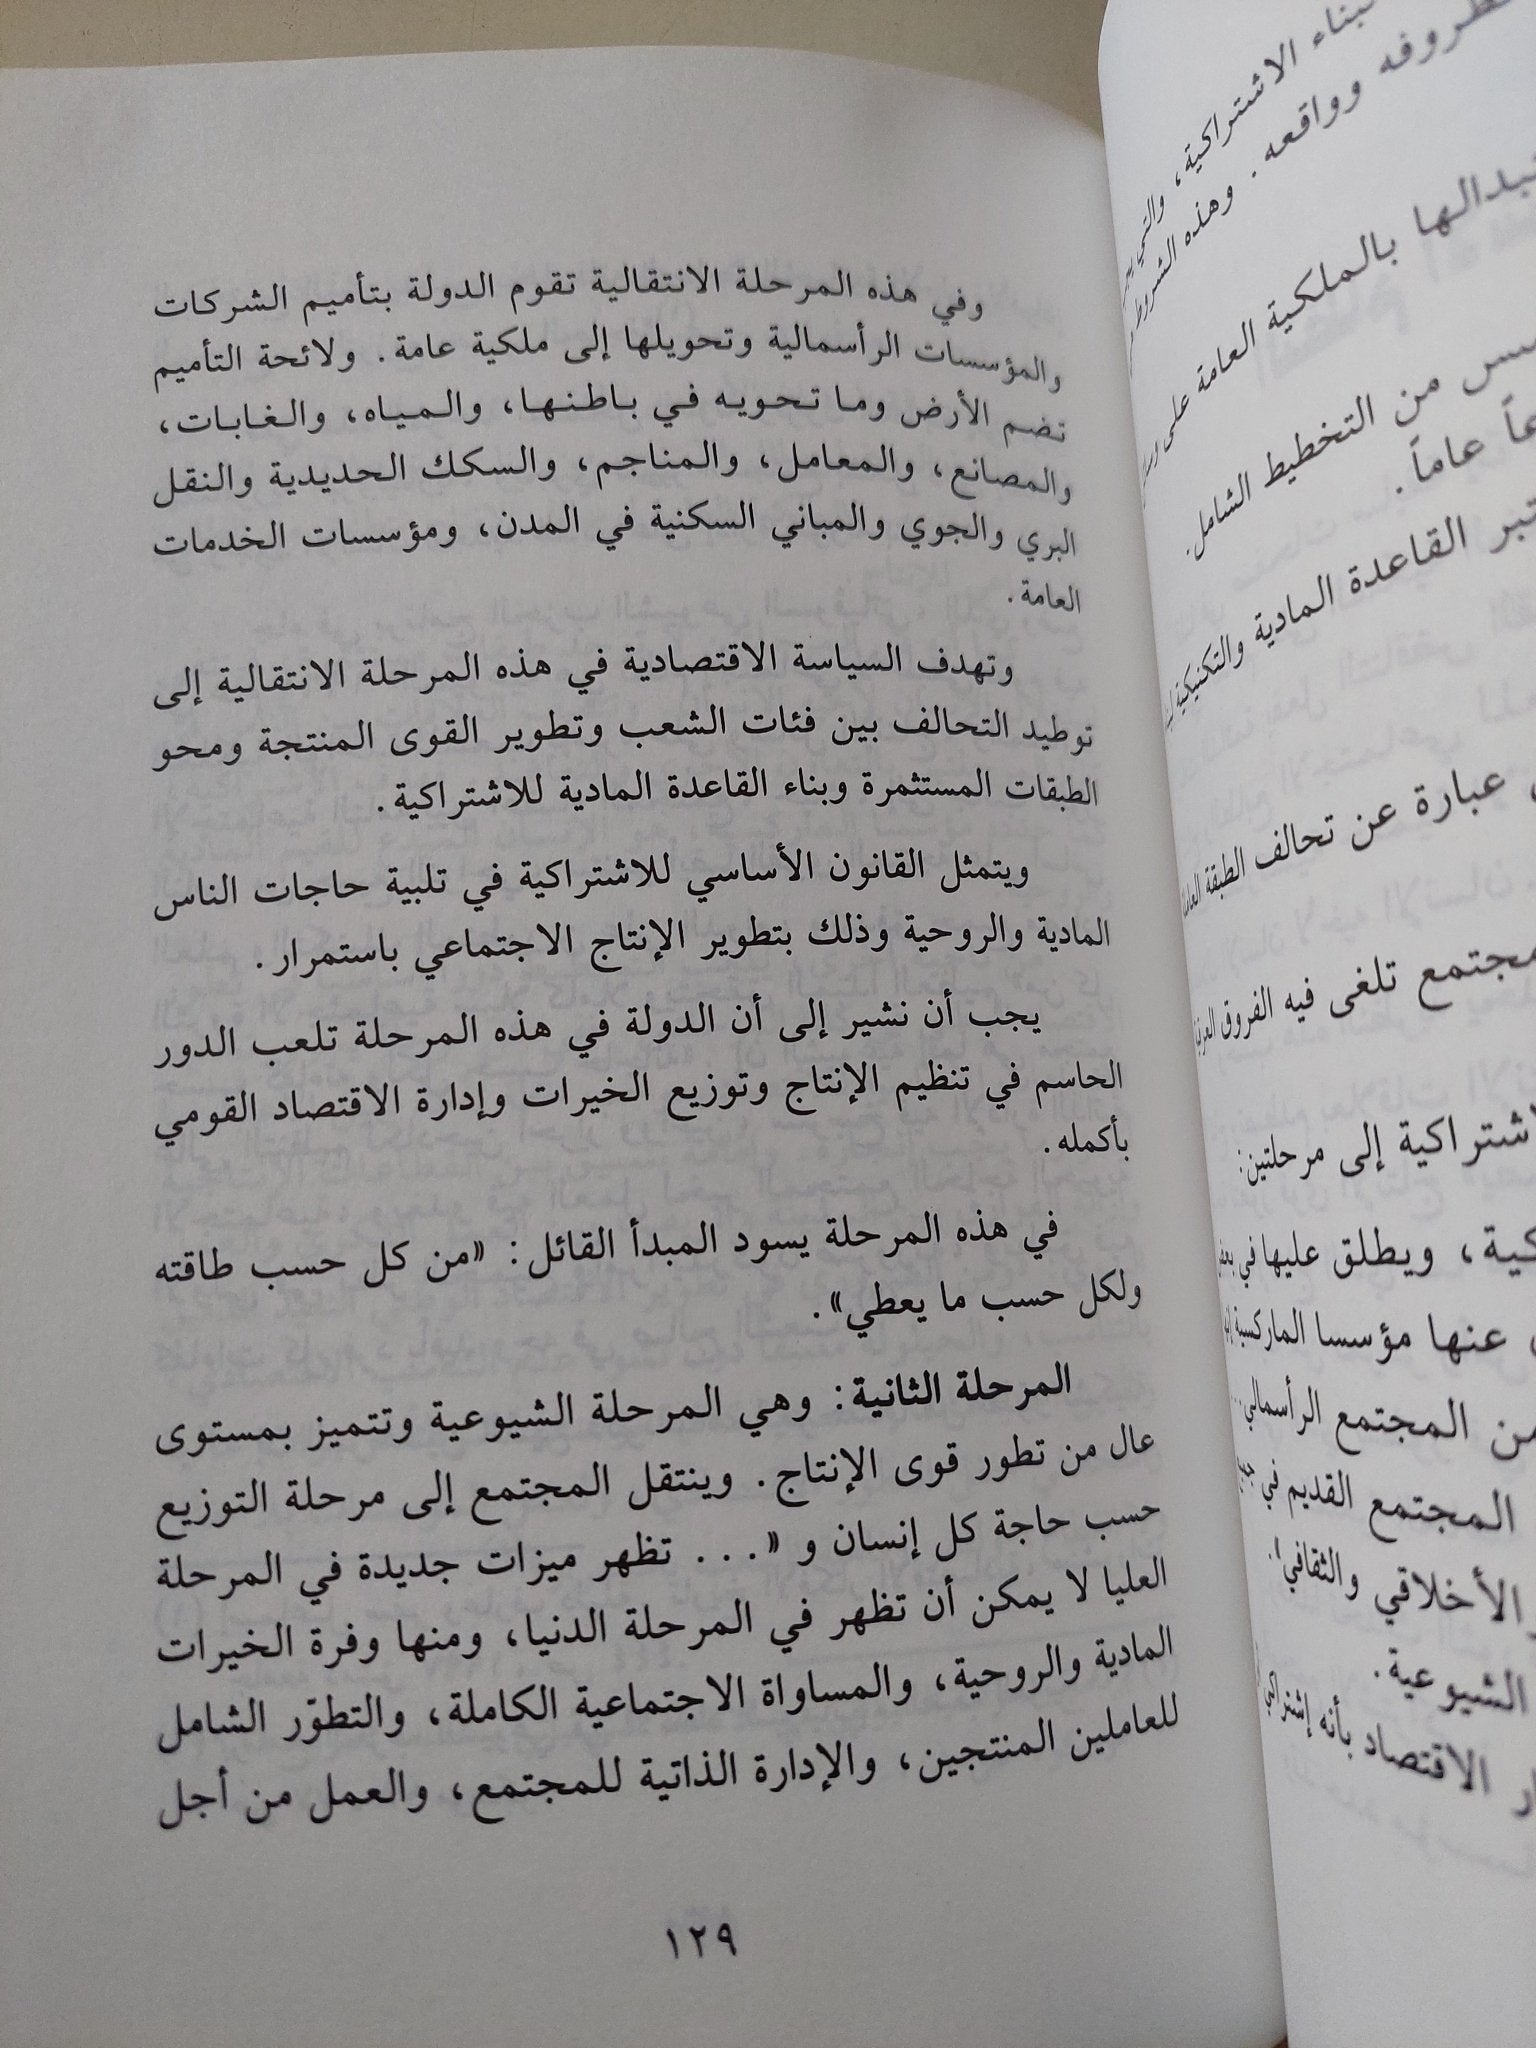 بناء الاشتراكية، والتي
ظروفه وواقعه. وهذه الشروط
بالملكية العامة على
من التخطيط الشامل.
عاماً.
القاعدة المادية والتكنيكية
عبارة عن تحالف الطبقة
مجتمع تلغى فيه الفروق
إلى مرحلتين:
ويطلق عليها في
عنها مؤسسا الماركسية
المجتمع الرأسمالي...
المجتمع القديم في
الأخلاقي والثقافي
الشيوعية.
الاقتصاد بأنه
وفي هذه المرحلة الانتقالية تقوم الدولة بتأميم الشركات
والمؤسسات الرأسمالية وتحويلها إلى ملكية عامة. ولائحة التأميم
تضم الأرض وما تحويه في باطنها، والمياه، والغابات،
والمصانع، والمعامل، والمناجم، والسكك الحديدية والنقل
البري والجوي والمباني السكنية في المدن، ومؤسسات الخدمات
العامة.
وتهدف السياسة الاقتصادية في هذه المرحلة الانتقالية إلى
توطيد التحالف بين فئات الشعب وتطوير القوى المنتجة ومحو
الطبقات المستثمرة وبناء القاعدة المادية للاشتراكية.
ويتمثل القانون الأساسي للاشتراكية في تلبية حاجات الناس
المادية والروحية وذلك بتطوير الإنتاج الاجتماعي باستمرار.
يجب أن نشير إلى أن الدولة في هذه المرحلة تلعب الدور
الحاسم في تنظيم الإنتاج وتوزيع الخيرات وإدارة الاقتصاد القومي
بأكمله.
في هذه المرحلة يسود المبدأ القائل: «من كل حسب طاقته
ولكل حسب ما يعطي».
المرحلة الثانية: وهي المرحلة الشيوعية وتتميز بمستوى
عال من تطور قوى الإنتاج. وينتقل المجتمع إلى مرحلة التوزيع
حسب حاجة كل إنسان و «... تظهر ميزات جديدة في المرحلة
العليا لا يمكن أن تظهر في المرحلة الدنيا، ومنها وفرة الخيرات
المادية والروحية، والمساواة الاجتماعية الكاملة، والتطوّر الشامل
للعاملين المنتجين، والإدارة الذاتية للمجتمع، والعمل من أجل
١٢٩